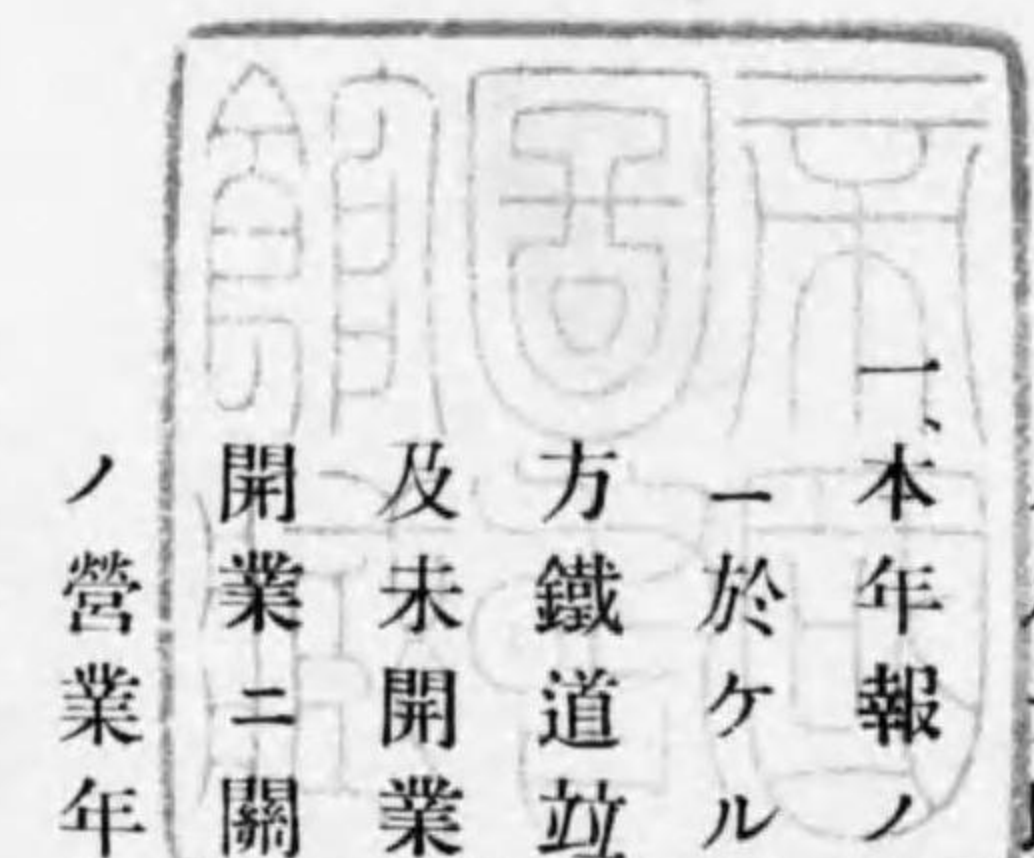 帝圖館
一、本年報ノ
ー於ケル
方鐵道竝
及未開業
開業ニ關
ノ營業年